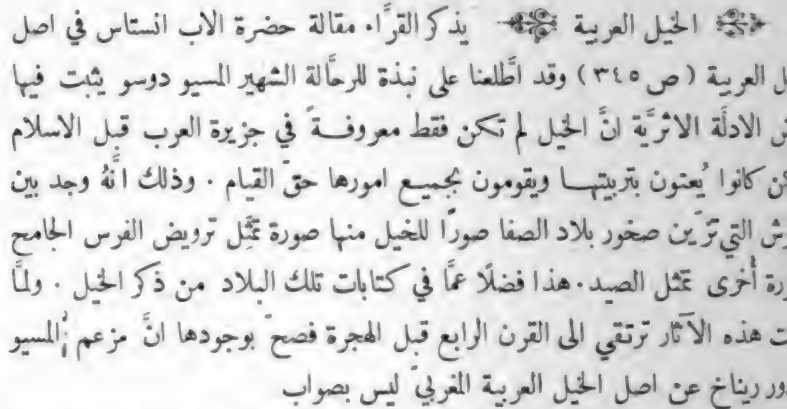 الخيل العربية يذكر القرَّاء مقالة حضرة الاب انستاس في اصل
ل العربية ( ص ٣٤٥ ) وقد اطَّلعنا على نبذة للرحَّالة الشهير المسيو دوسو يثبت فيها
ض الادلَّة الاثريَّة انَّ الخيل لم تكن فقط معروفــة في جزيرة العرب قبل الاسلام
كن كانوا يُعنون بتربيتهــا ويقومون بجميـع امورها حقّ القيام . وذلك انَّهُ وجد بين
رش التي تزَين صخور بلاد الصفا صورًا للخيل منها صورة تمثِّل ترويض الفرس الجامح
ررة أُخرى تمثل الصيد . هذا فضلًا عمَّا في كتابات تلك البلاد من ذكر الخيل . ولمَّا
ت هذه الآثار ترتقي الى القرن الرابع قبل الهجرة فصحّ بوجودها انَّ مزعم المسيو
دور ريناخ عن اصل الخيل العربية المغربيّ ليس بصواب